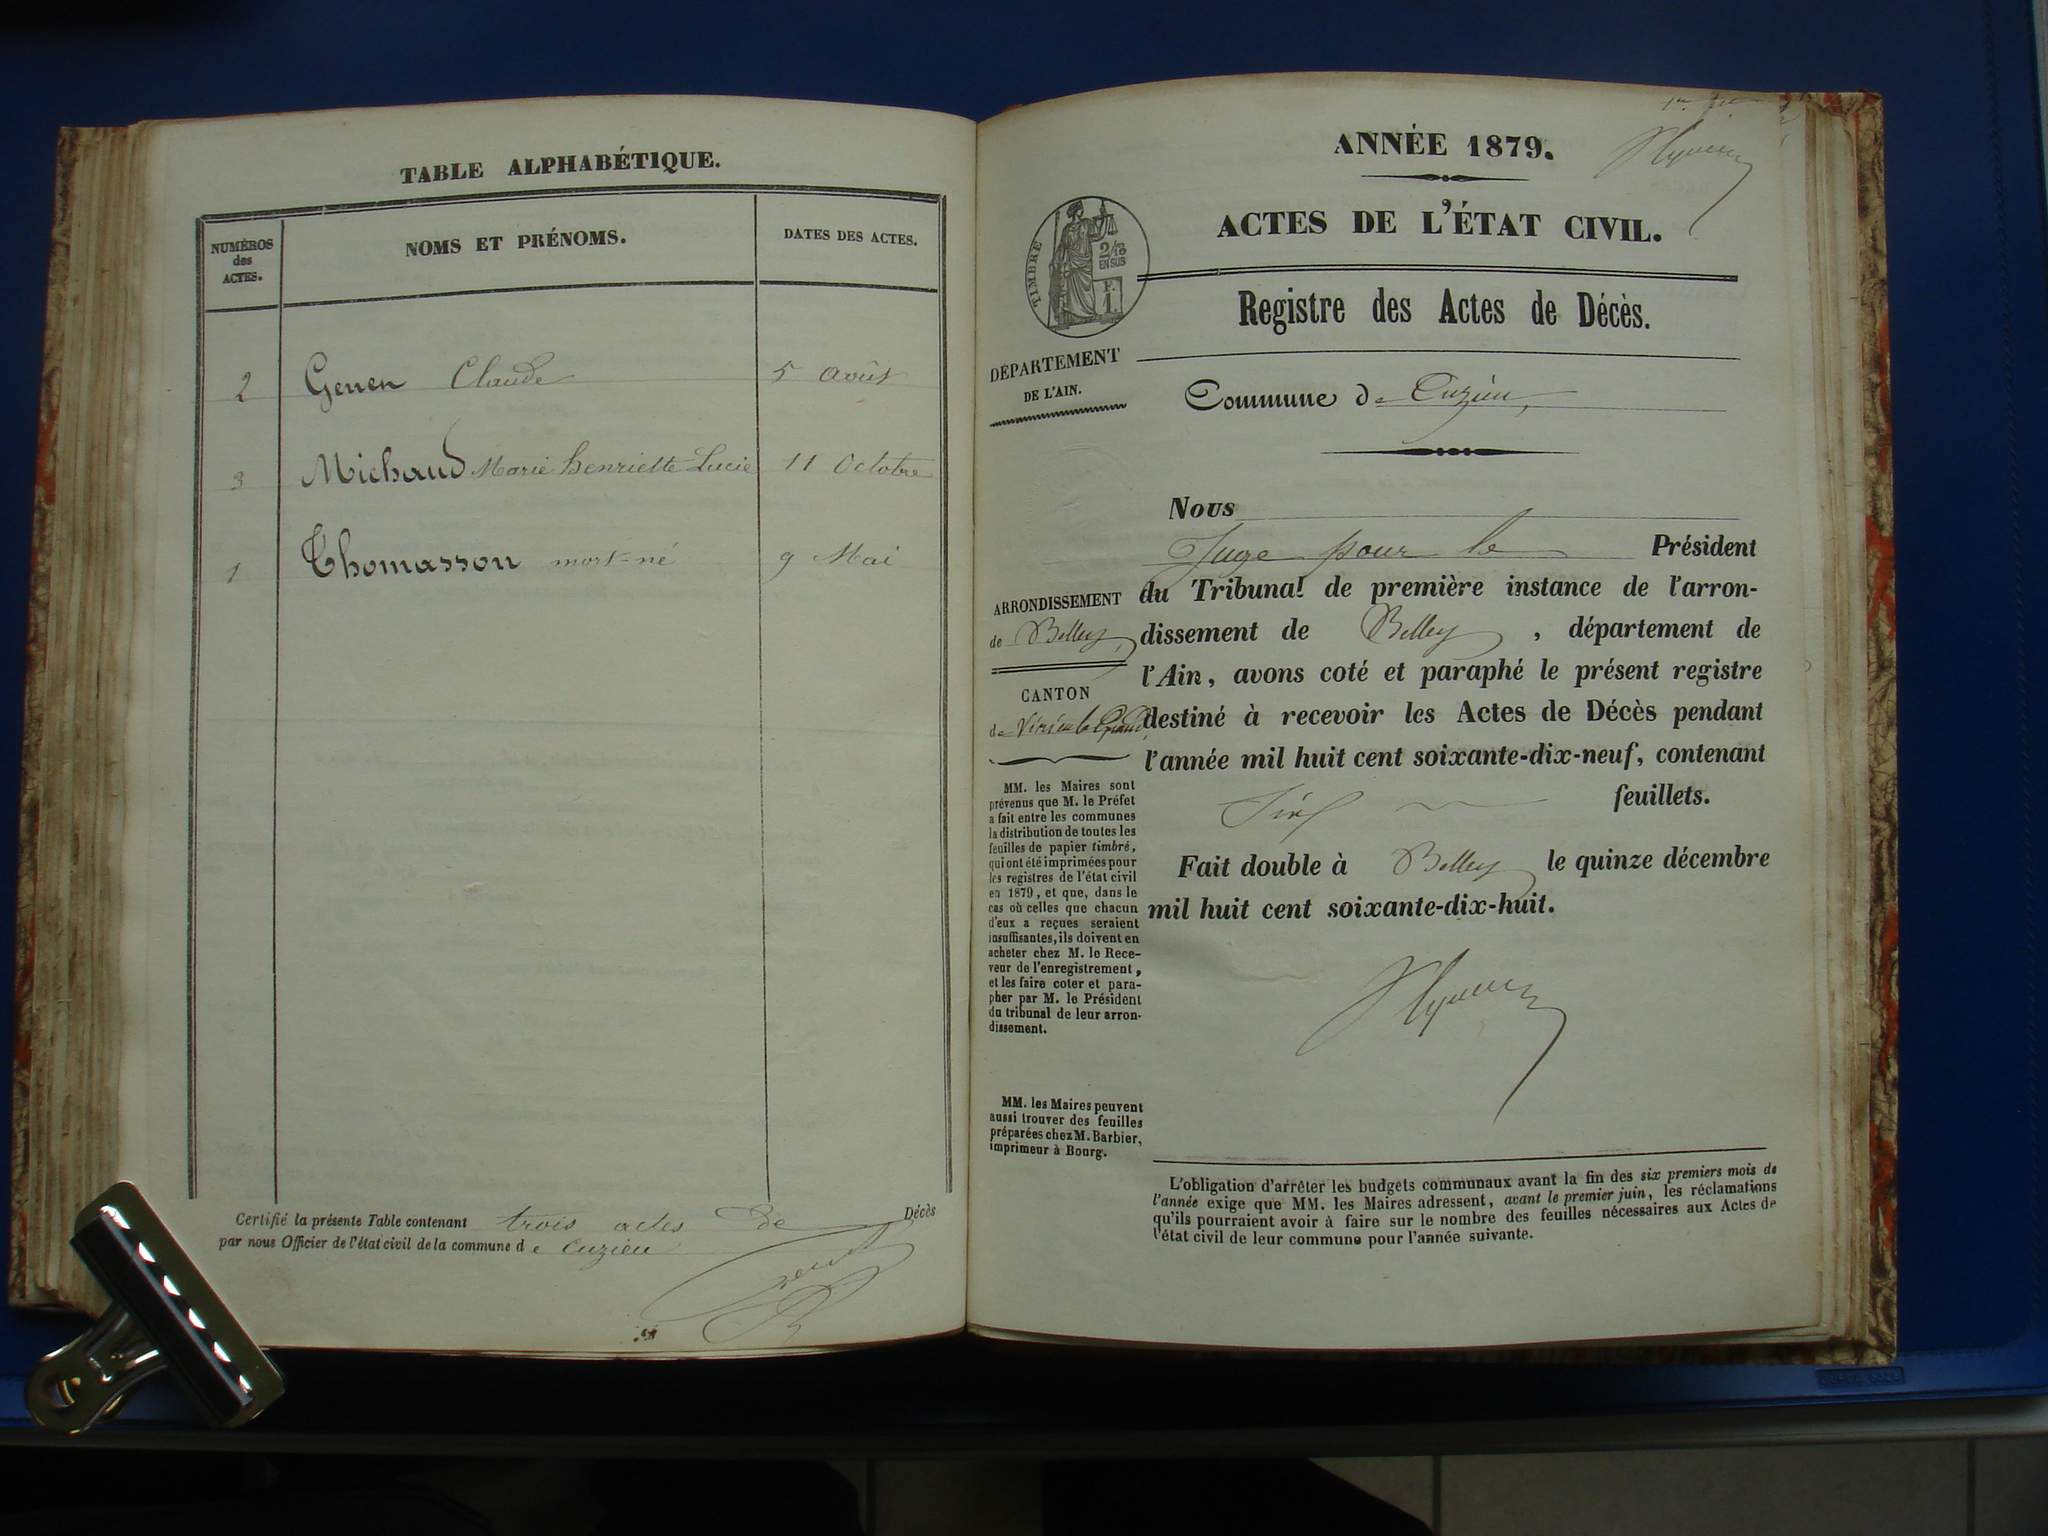 TABLE ALPHABÉTIQUE.
NUMÉROS des ACTES.
NOMS ET PRÉNOMS.
DATES DES ACTES.
2 Genen Claude 5 Août
3 Michaud Marie henriette Lucie 11 Octobre
1 Thomasson mort-né 9 Mai
Certifié la présente Table contenant trois actes de Décès
par nous Officier de l'état civil de la commune de Cuzieu
ANNÉE 1879.
ACTES DE L'ÉTAT CIVIL.
TIMBRE
2/10
EN SUS
F.
1.
Registre des Actes de Décès.
DÉPARTEMENT
DE L'AIN.
Commune de Cuzieu,
ARRONDISSEMENT
de Belley,
CANTON
de Virieu le Grand,
MM. les Maires sont
prévenus que M. le Préfet
a fait entre les communes
la distribution de toutes les
feuilles de papier timbré,
qui ont été imprimées pour
les registres de l'état civil
en 1879, et que, dans le
cas où celles que chacun
d'eux a reçues seraient
insuffisantes, ils doivent en
acheter chez M. le Rece-
veur de l'enregistrement,
et les faire coter et para-
pher par M. le Président
du tribunal de leur arron-
dissement.
MM. les Maires peuvent
aussi trouver des feuilles
préparées chez M. Barbier,
imprimeur à Bourg.
Nous
Juge pour le Président
du Tribunal de première instance de l'arron-
dissement de Belley, département de
l'Ain, avons coté et paraphé le présent registre
destiné à recevoir les Actes de Décès pendant
l'année mil huit cent soixante-dix-neuf, contenant
Six feuillets.
Fait double à Belley le quinze décembre
mil huit cent soixante-dix-huit.
L'obligation d'arrêter les budgets communaux avant la fin des six premiers mois de
l'année exige que MM. les Maires adressent, avant le premier juin, les réclamations
qu'ils pourraient avoir à faire sur le nombre des feuilles nécessaires aux Actes de
l'état civil de leur commune pour l'année suivante.